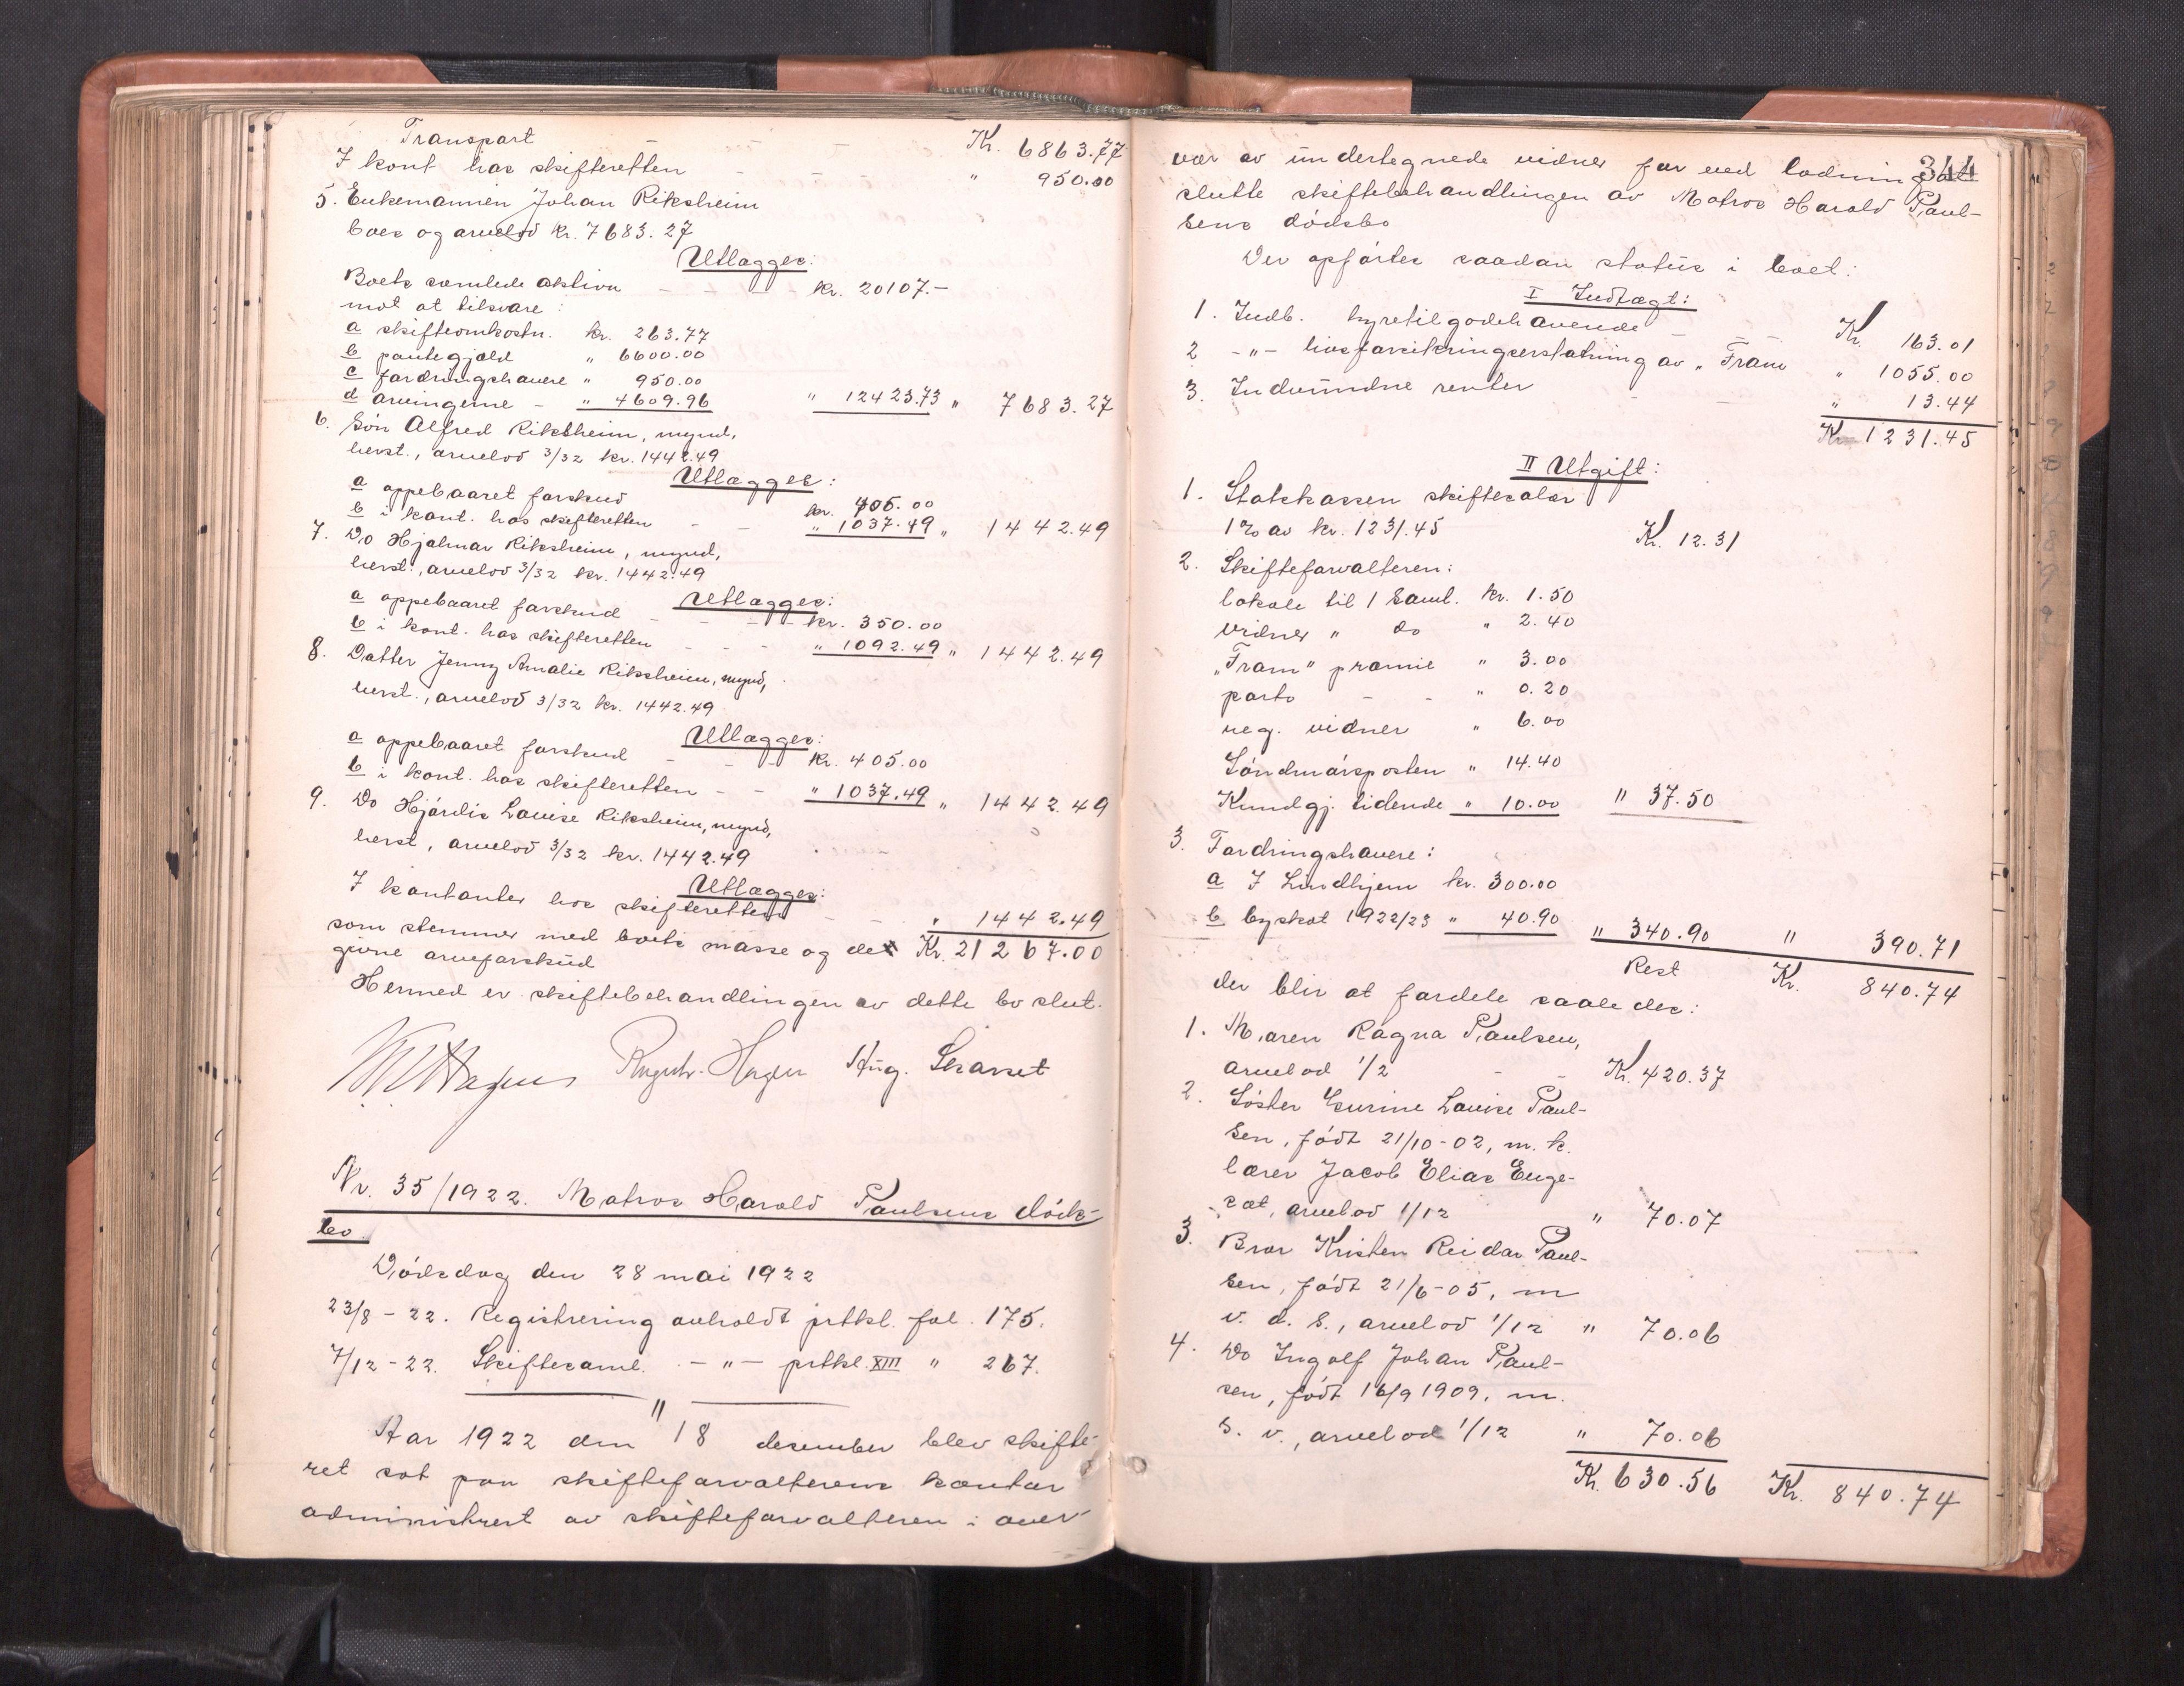 Transport - - Kr. 6863.77
I kont hos skifteretten - - - " 950.00
5. Enkemannen Johan Riksheim
boes og arvelod kr. 7683.27
Utlægges:
Boets samlede aktiva - - - - kr. 20107.-
mot at tilsvare:
a skifteomkostn. kr. 263.77
b pantegjæld " 6600.00
c fordringshavere " 950.00
d arvingerne - " 4609.96 " 12423.73 " 7683.27
6. Søn Alfred Riksheim, mynd,
herst., arvelod 3/32 kr. 1442.49
Utlægges:
a oppebaaret forskud kr. 405.00
b i kont. hos skifteretten - - " 1037.49 " 1442.49
7. Do Hjalmar Riksheim, mynd,
herst., arvelod 3/32 kr. 1442.49
Utlægges:
a oppebaaret forskud - - - - kr. 350.00
b i kont. hos skifteretten - - - " 1092.49 " 1442.49
8. Datter Jenny Amalie Riksheim, mynd,
herst., arvelod 3/32 kr. 1442.49
Utlægges:
a oppebaaret forskud - - - Kr. 405.00
b i kont. hos skifteretten - - " 1037.49 " 1442.49
9. Do Hjördis Louise Riksheim, mynd,
herst, arvelod 3/32 kr. 1442.49
Utlægges:
I kontanter hos skifteretten - - " 1442.49
som stemmer med boets masse og det Kr. 21267.00
givne arveforskud
Hermed er skiftebehandlingen av dette bo slut.
Aug. Skarset
Nr. 35/1922. Matros Harald Paulsens döds-
bo.
Dödsdag den 28 mai 1922
23/8-22. Registrering avholdt prtkl. fol. 175.
7/12-22. Skiftesaml. -"- prtkl. XIII " 267.
"
Aar 1922 den 18 desember blev skifte-
ret sat paa skifteforvalterens kontor
administrert av skifteforvalteren i over
344
vær av undertegnede vidner for ved lodning at
slutte skiftebehandlingen av Matros Harald Paul-
sens dödsbo
Der opförtes saadan status i boet:
I Indtægt:
1. Indb. hyretilgodehavende - - Kr. 163.01
2 -"- livsforsikringserstatning av "Fram " 1055.00
3. Indvundne renter - - " 13.44
Kr 1231.45
II Utgift:
1. Statskassen skiftesalær
1% av kr. 1231.45 Kr. 12.31
2. Skifteforvalteren:
lokale til 1 saml. kr. 1.50
vidner " do " 2.40
"Fram" præmie " 3.00
porto - - " 0.20
reg. vidner " 6.00
Söndmörsposten " 14.40
Kundgj. tidende " 10.00 " 37.50
3. Fordringshavere:
a I Lindhjem kr. 300.00
b byskat 1922/23 " 40.90 " 340.90 " 390.71
Rest Kr. 840.74
der blir at fordele saaledes:
1. Maren Ragna Paulsen,
arvelod 1/2 - - Kr. 420.37
2. Söster Gurine Louise Paul-
sen, födt 21/10-02, m. k.
lærer Jacob Elias Enge-
sæt, arvelod 1/12 " 70.07
3. Bror Kristen Reidar Paul-
sen, födt 21/6-05, m
v. d. s., arvelod 1/12 " 70.06
4. Do Ingolf Johan Paul-
sen, födt 16/9 1909, m.
s. v., arvelod 1/12 " 70.06
Kr. 630.56 Kr. 840.74